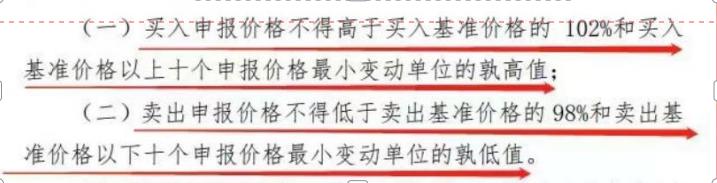 （一）买入申报价格不得高于买入基准价格的 102%和买入
基准价格以上十个申报价格最小变动单位的孰高值；
（二）卖出申报价格不得低于卖出基准价格的 98%和卖出基
准价格以下十个申报价格最小变动单位的孰低值。